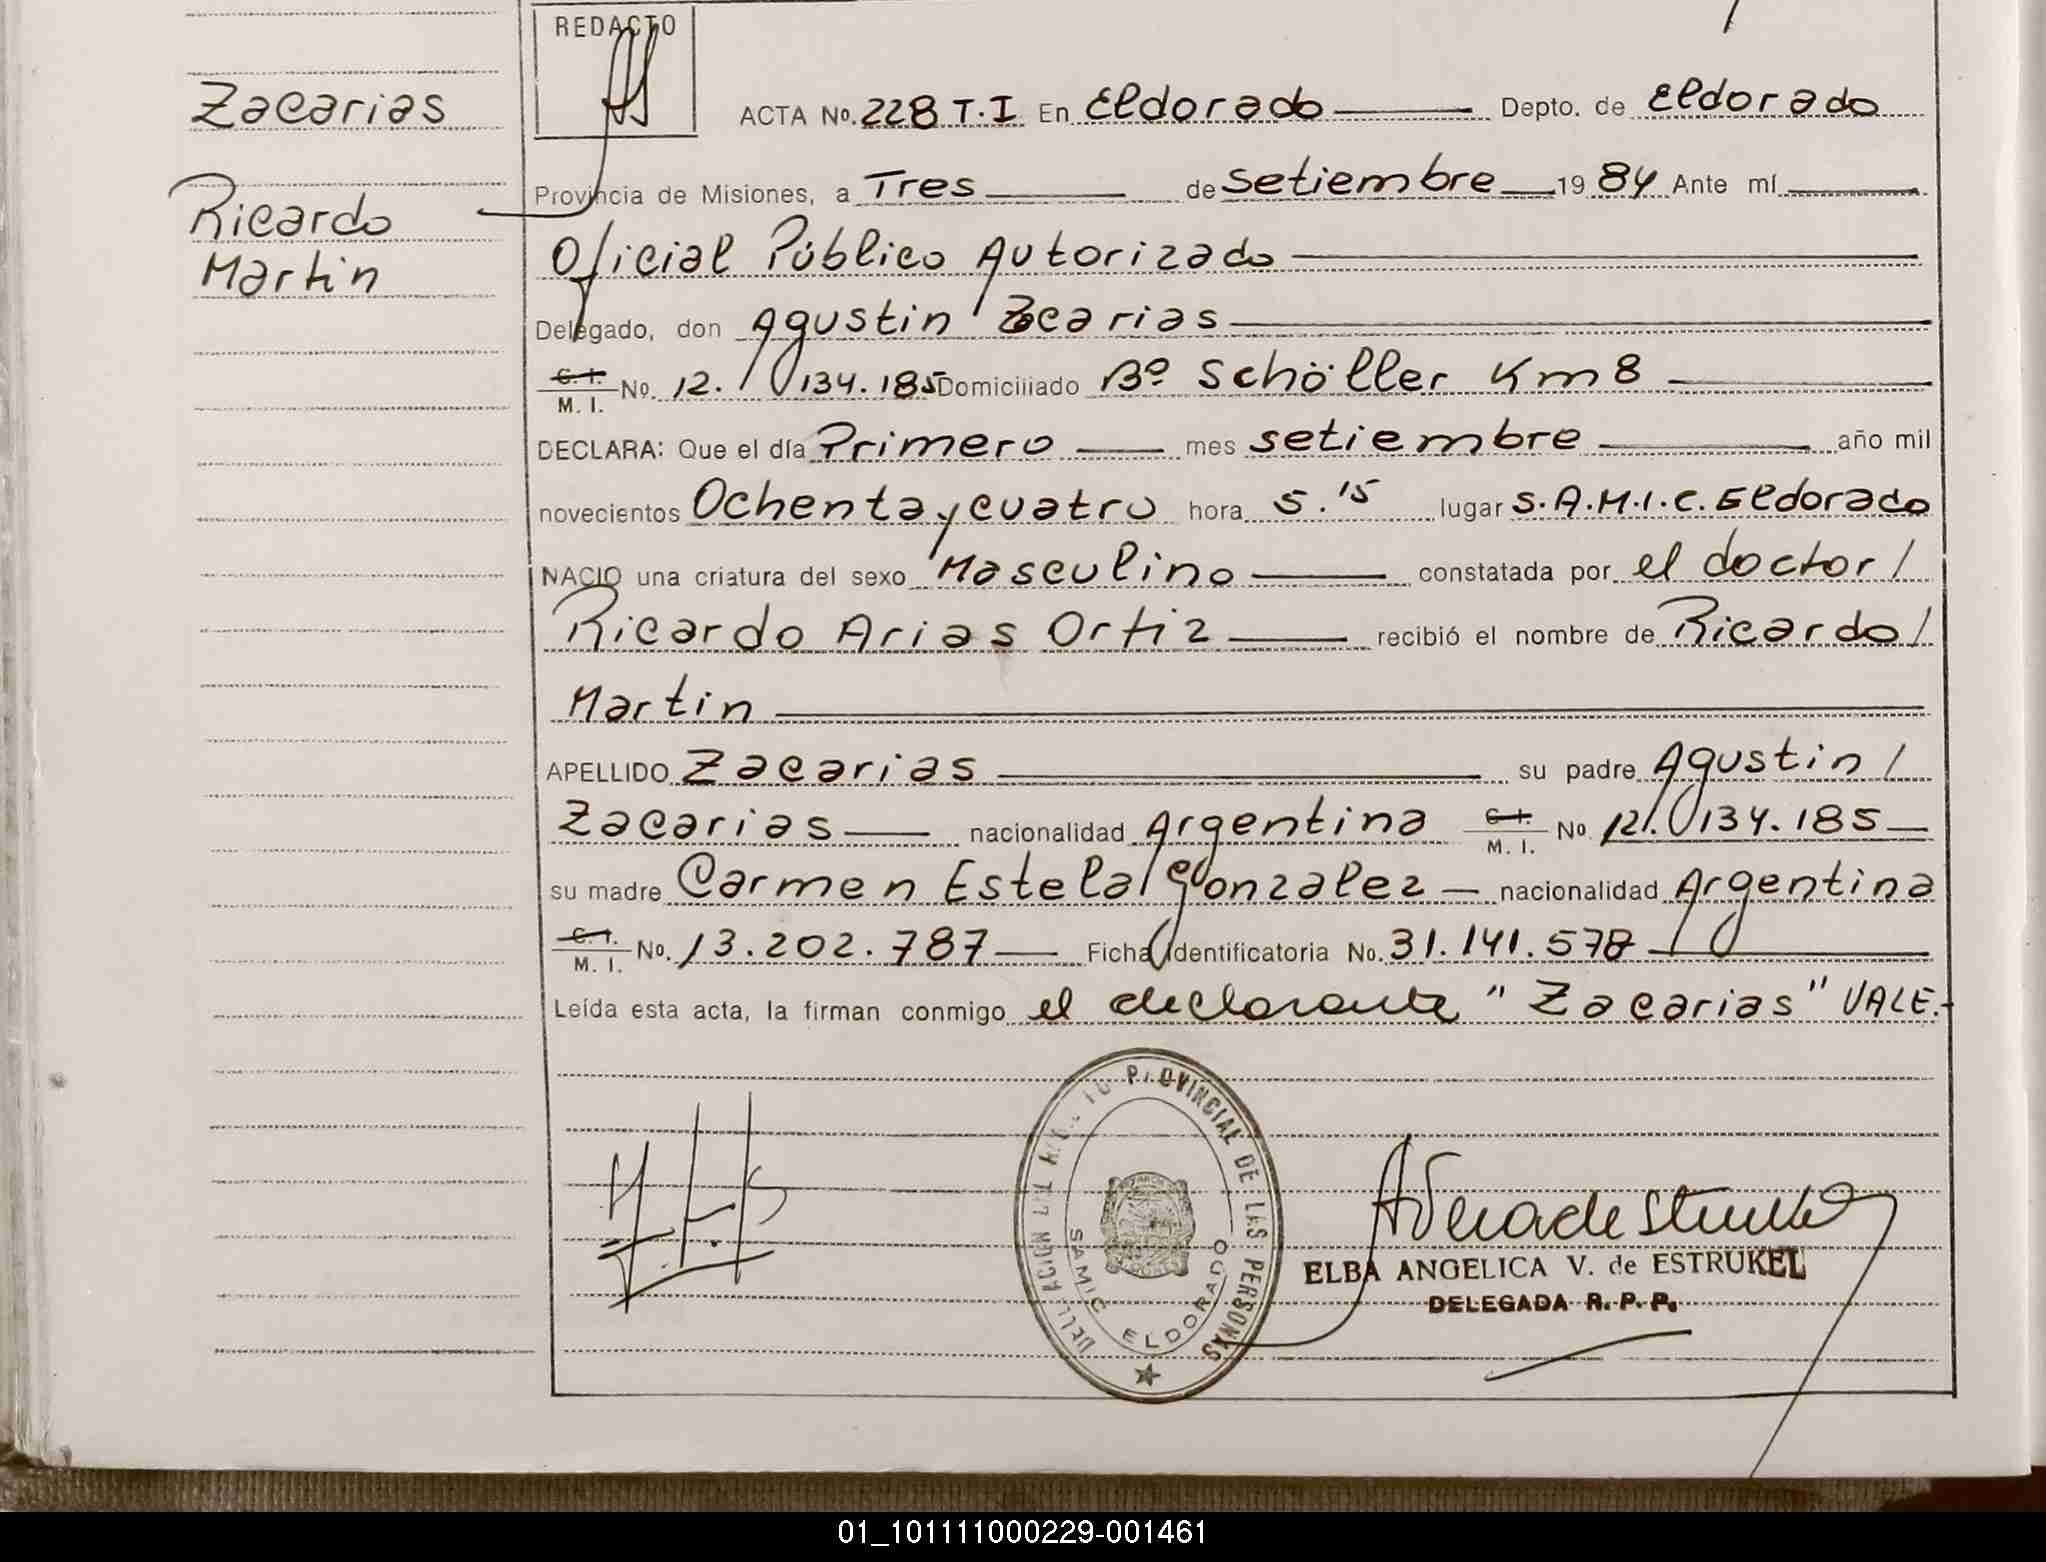 Zacarias
Ricardo
Martin
REDACTO
ACTA No. 228 T.I En Eldorado Depto. de Eldorado
Provincia de Misiones, a Tres de Setiembre 1984 Ante mí
Oficial Público Autorizado
Delegado, don Agustin Zacarias
C. I. M. I. No. 12.134.185 Domiciliado Bº Schöller Km 8
DECLARA: Que el día Primero mes setiembre año mil
novecientos Ochenta y cuatro hora 5.15 lugar S.A.M.I.C. Eldorado
NACIO una criatura del sexo Masculino constatada por el doctor/
Ricardo Arias Ortiz recibió el nombre de Ricardo/
Martin
APELLIDO Zacarias su padre Agustin/
Zacarias nacionalidad Argentina C. I. M. I. No. 12.134.185
su madre Carmen Estela Gonzalez nacionalidad Argentina
C. I. M. I. No. 13.202.787 Ficha Identificatoria No. 31.141.578
Leída esta acta, la firman conmigo el declarante "Zacarias" VALE.-
PROVINCIAL DE LAS PERSONAS
SAMIC ELDORADO
ELBA ANGELICA V. de ESTRUKEL
DELEGADA R. P. P.
01_101111000229-001461